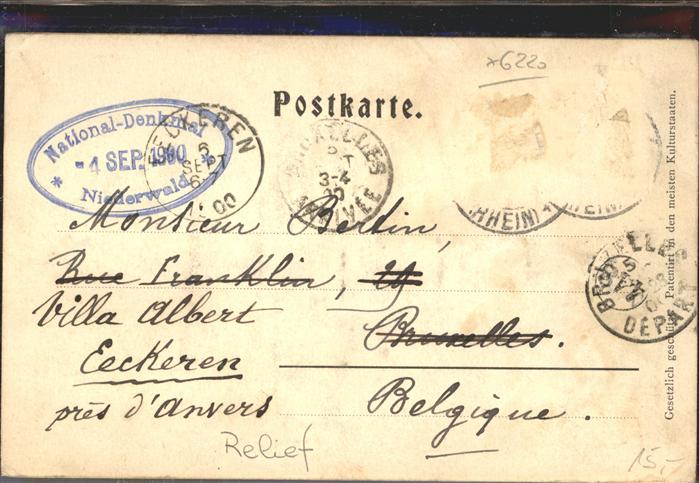 *6220
Postkarte.
National-Denkmal
-4 SEP. 1900
* Niederwald *
EECKEREN
6
SEPT
6
00
BRUXELLES
3-4
ARRIVÉE
(RHEIN)
BRUXELLES
5
DEPART
Monsieur Bertin,
Rue Franklin,
Villa Albert
Bruxelles.
Eeckeren
près d'Anvers
Belgique.
Relief
15,-
Gesetzlich geschützt. Patentirt in den meisten Kulturstaaten.